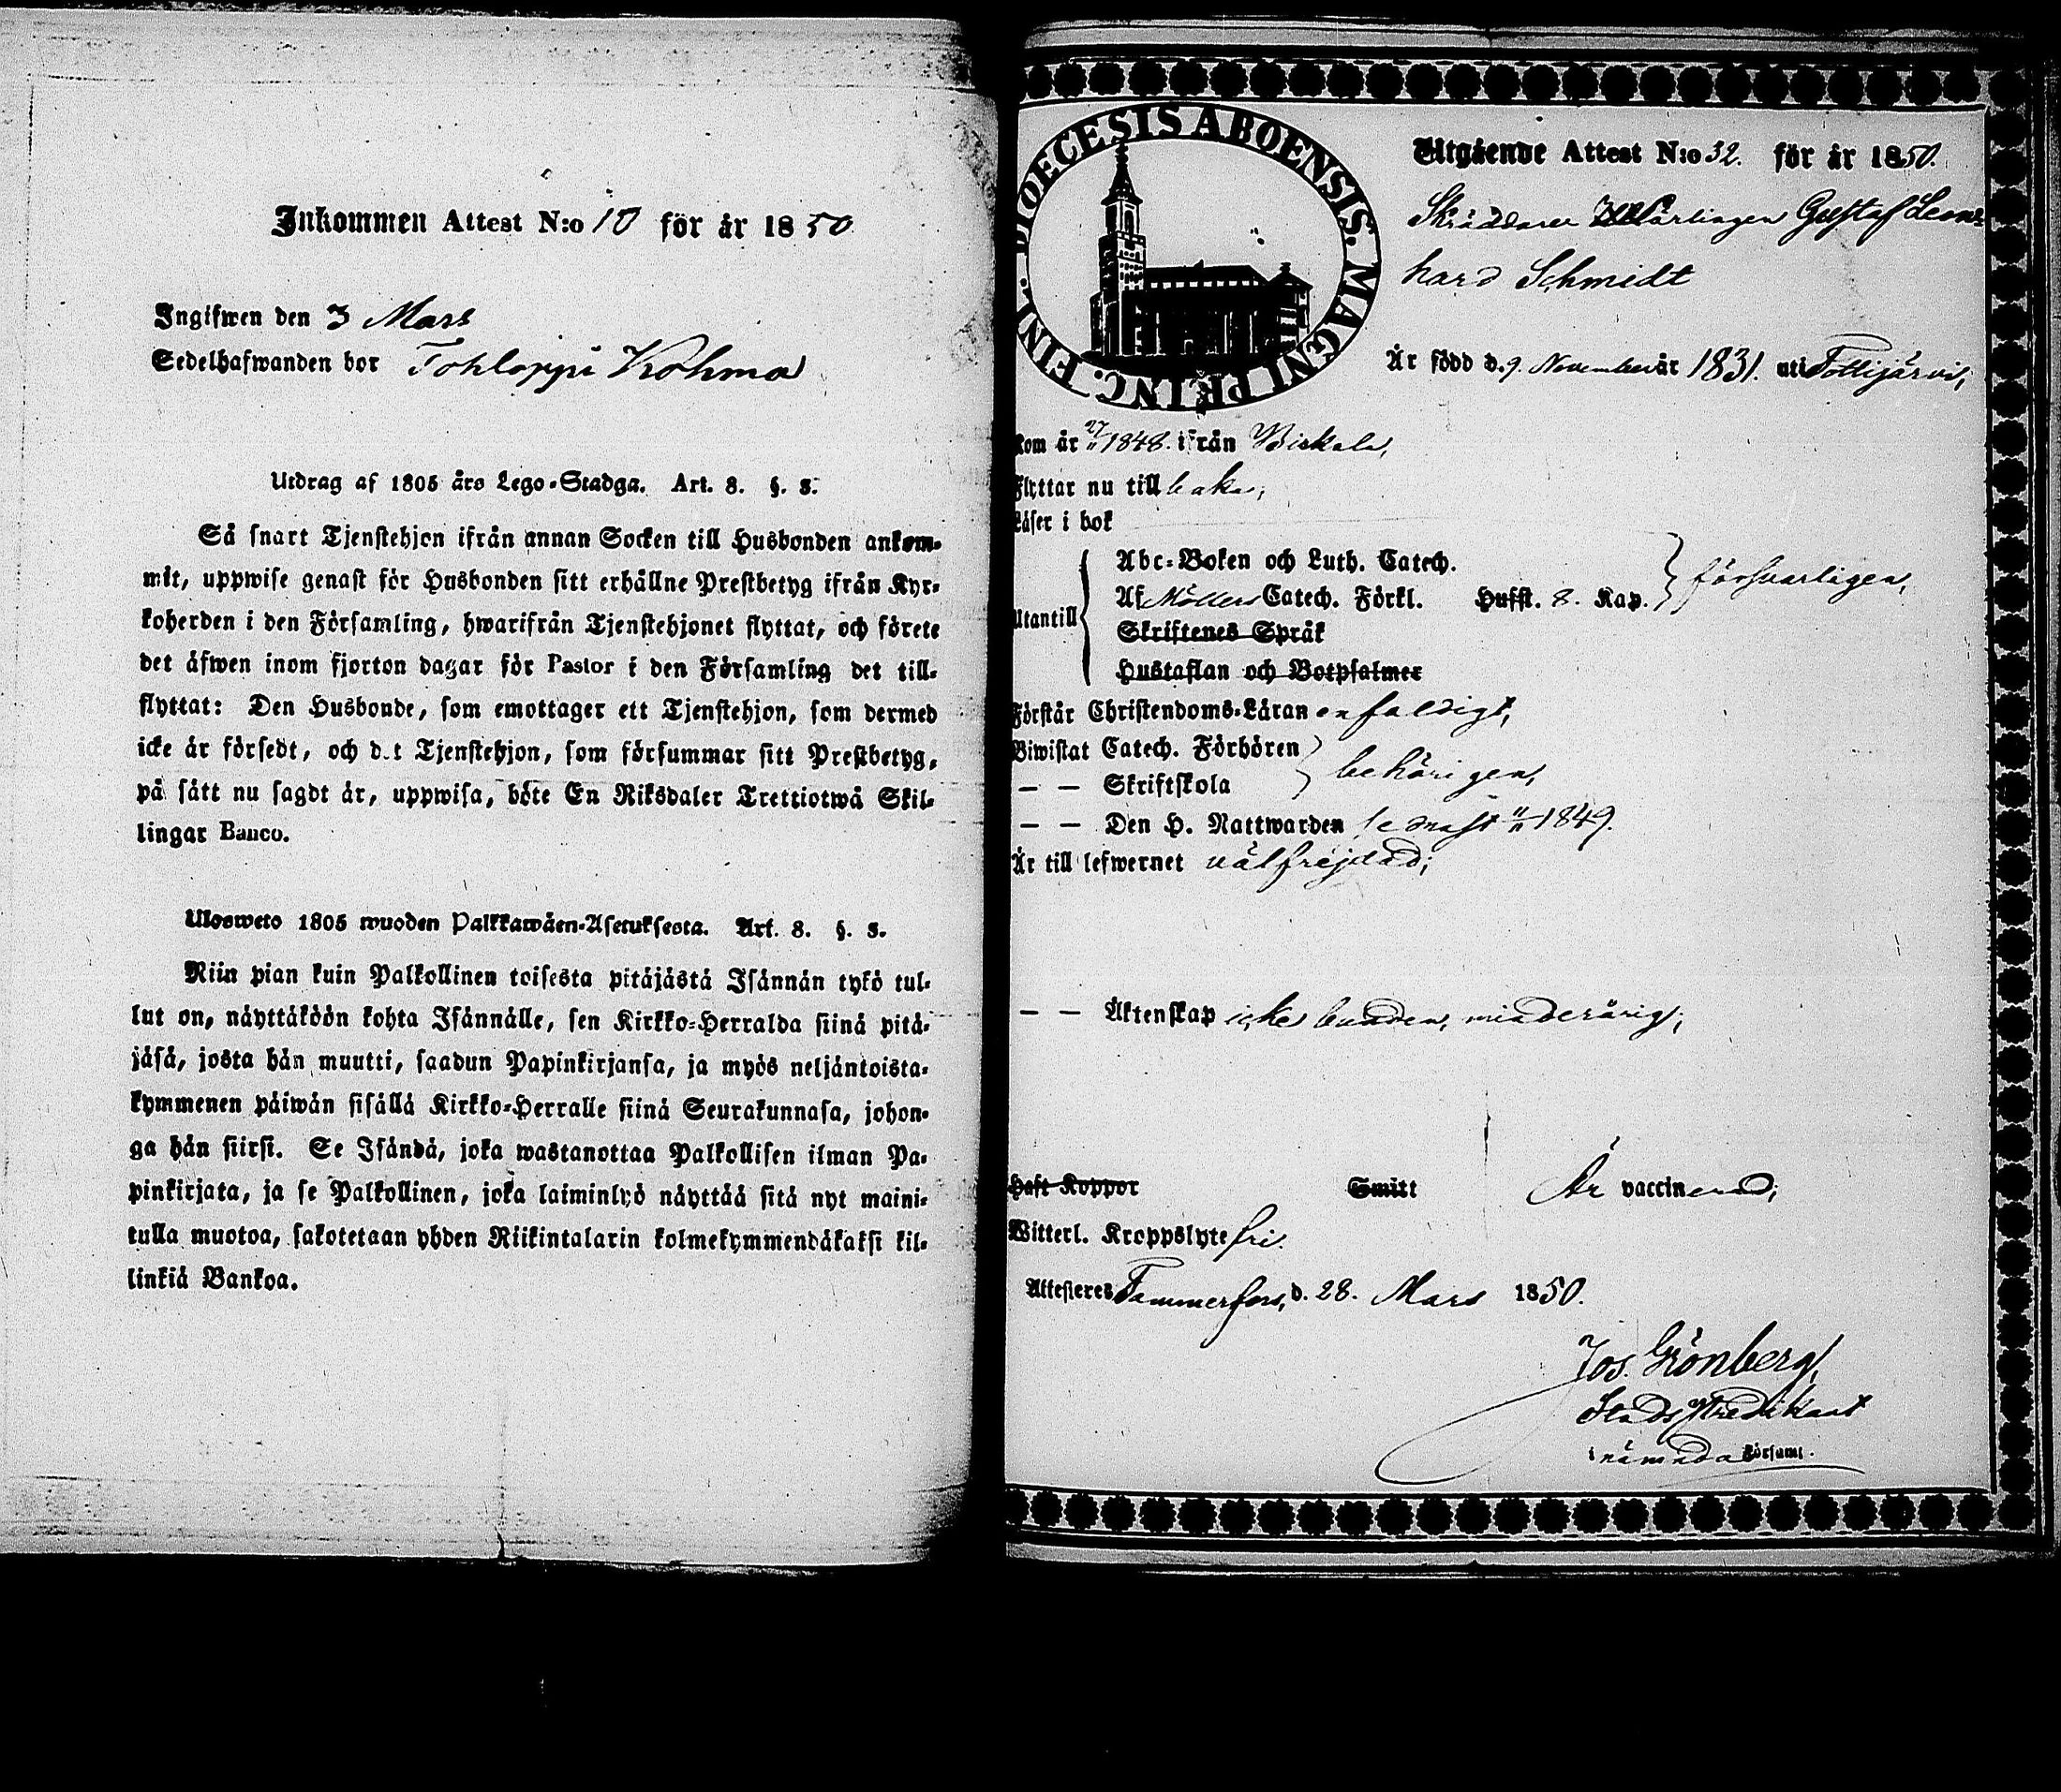 Inkommen Attest N:o 10 för år 1850
Ingifwen den 3 Mars
Sedelhafwanden bor Tohloppi Kohma
Utdrag af 1805 års Lego-Stadga. Art. 8. §. 3.
Så snart Tjenstehjon ifrån annan Socken till Husbonden ankom-
mit, uppwise genast för Husbonden sitt erhållne Prestbetyg ifrån Kyr-
koherden i den Församling, hwarifrån Tjenstehjonet flyttat, och förete
det äfwen inom fjorton dagar för Pastor i den Församling det till-
flyttat: Den Husbonde, som emottager ett Tjenstehjon, som dermed
icke är försedt, och det Tjenstehjon, som försummar sitt Prestbetyg,
på sätt nu sagdt är, uppwisa, böte En Riksdaler Trettiotwå Skil-
lingar Banco.
Ulosweto 1805 wuoden Palkkawäen-Asetuksesta. Art. 8. §. 3.
Niin pian kuin Palkollinen toisesta pitäjästä Isännän tykö tul-
lut on, näyttäköön kohta Isännälle, sen Kirkko-Herralda siinä pitä-
jäsä, josta hän muutti, saadun Papinkirjansa, ja myös neljäntoista-
kymmenen päiwän sisällä Kirkko-Herralle siinä Seurakunnasa, johon-
ga hän siirsi. Se Isändä, joka wastanottaa Palkollisen ilman Pa-
pinkirjata, ja se Palkollinen, joka laiminlyö näyttää sitä nyt maini-
tulla muotoa, sakotetaan yhden Riikintalarin kolmekymmendäkaksi kil-
linkiä Bankoa.
DIOECESIS ABOENSIS. MAGNI PRINC. FINL.
Utgående Attest N:o 32. för år 1850.
Skräddare Lärlingen Gustaf Leon-
hard Schmidt
Är född d. 9. November år 1831. uti Tottijärvi,
Kom år 27/11 1848. ifrån Birkala,
Flyttar nu tillbaka;
Läser i bok
Abc-Boken och Luth. Catech.
Utantill Af Möllers Catech. Förkl. Husst. 8. Kap. försvarligen,
Skriftenes Språk
Hustaflan och Botpsalmer
Förstår Christendoms-Läran enfaldigt,
Biwistat Catech. Förhören
— — Skriftskola behörigen,
— — Den H. Nattwarden senast 11/11 1849.
Är till lefwernet välfrejdad;
— — Äktenskap icke bunden, minderårig;
Haft Koppor Smitt Är vaccinerad;
Witterl. Kroppslyte fri.
Attesteres Tammerfors, d. 28. Mars 1850.
Jos. Grönberg,
Stads Predikant
i nämnda Församl.